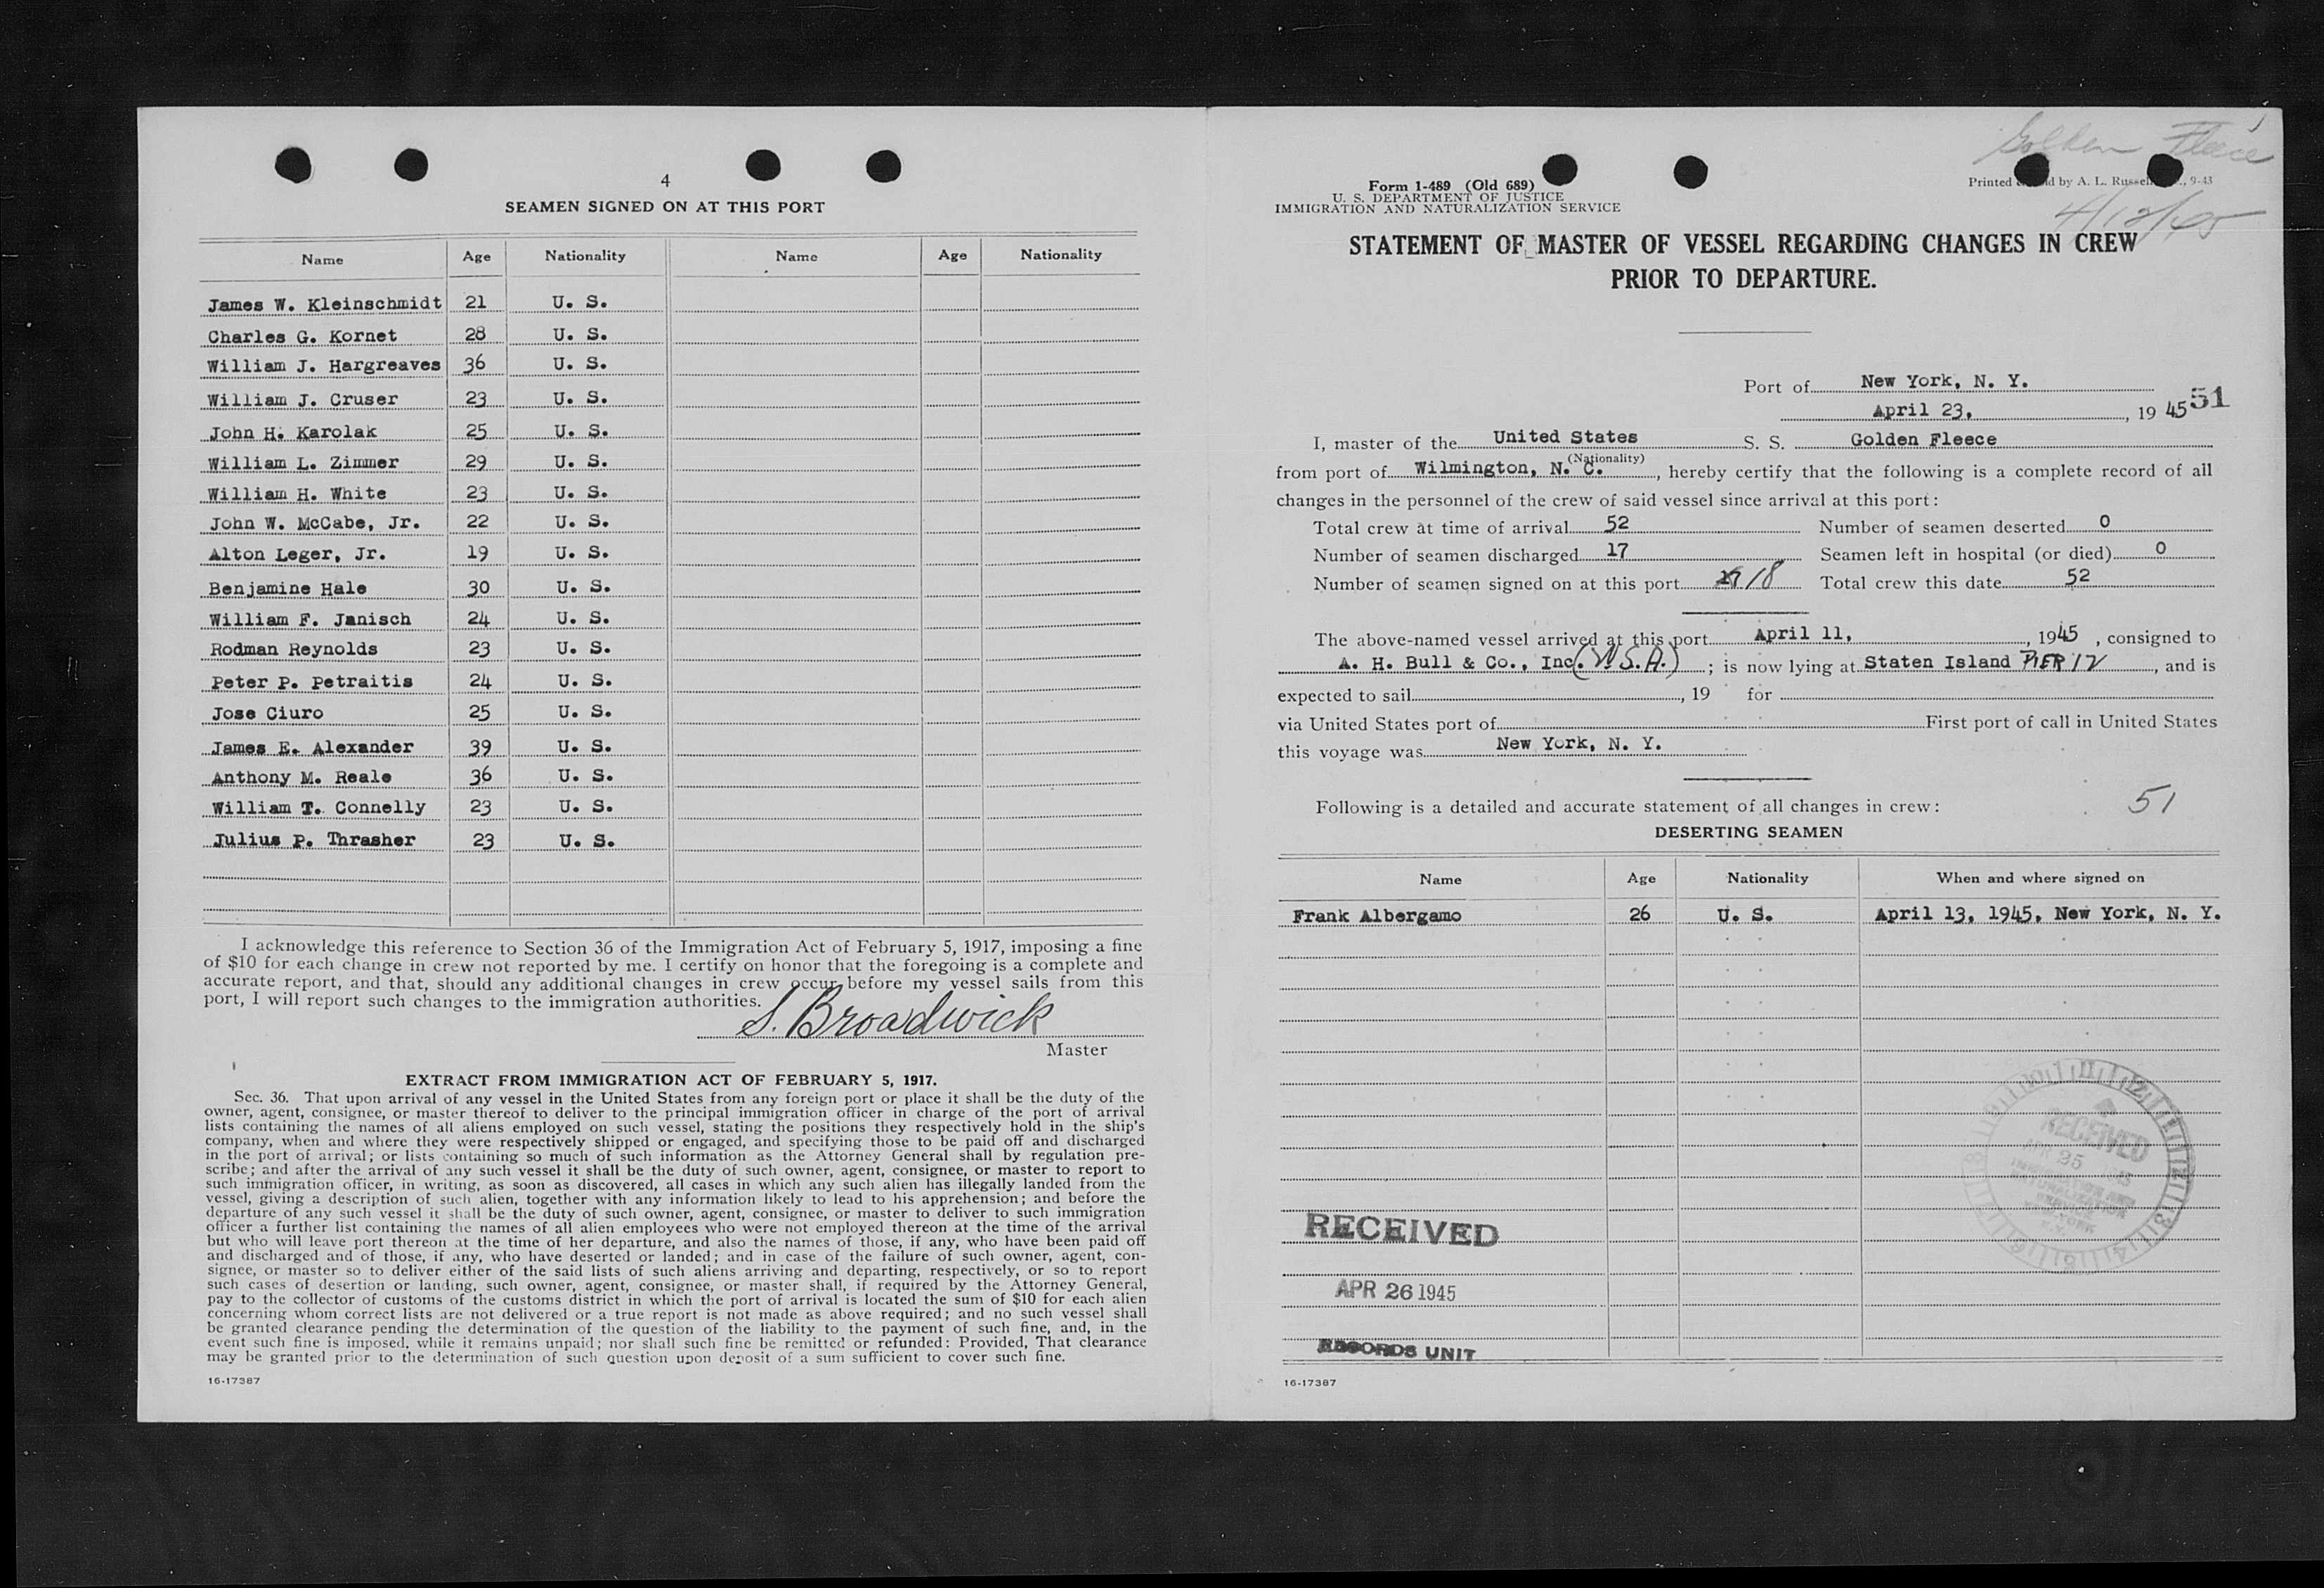 4
SEAMEN SIGNED ON AT THIS PORT
Name Age Nationality Name Age Nationality
James W. Kleinschmidt 21 U. S.
Charles G. Kornet 28 U. S.
William J. Hargreaves 36 U. S.
William J. Cruser 23 U. S.
John H. Karolak 25 U. S.
William L. Zimmer 29 U. S.
William H. White 23 U. S.
John W. McCabe, Jr. 22 U. S.
Alton Leger, Jr. 19 U. S.
Benjamine Hale 30 U. S.
William F. Janisch 24 U. S.
Rodman Reynolds 23 U. S.
Peter P. Petraitis 24 U. S.
Jose Ciuro 25 U. S.
James E. Alexander 39 U. S.
Anthony M. Reale 36 U. S.
William T. Connelly 23 U. S.
Julius P. Thrasher 23 U. S.
I acknowledge this reference to Section 36 of the Immigration Act of February 5, 1917, imposing a fine
of $10 for each change in crew not reported by me. I certify on honor that the foregoing is a complete and
accurate report, and that, should any additional changes in crew occur before my vessel sails from this
port, I will report such changes to the immigration authorities.
S. Broadwick
Master
EXTRACT FROM IMMIGRATION ACT OF FEBRUARY 5, 1917.
Sec. 36. That upon arrival of any vessel in the United States from any foreign port or place it shall be the duty of the
owner, agent, consignee, or master thereof to deliver to the principal immigration officer in charge of the port of arrival
lists containing the names of all aliens employed on such vessel, stating the positions they respectively hold in the ship's
company, when and where they were respectively shipped or engaged, and specifying those to be paid off and discharged
in the port of arrival; or lists containing so much of such information as the Attorney General shall by regulation pre-
scribe; and after the arrival of any such vessel it shall be the duty of such owner, agent, consignee, or master to report to
such immigration officer, in writing, as soon as discovered, all cases in which any such alien has illegally landed from the
vessel, giving a description of such alien, together with any information likely to lead to his apprehension; and before the
departure of any such vessel it shall be the duty of such owner, agent, consignee, or master to deliver to such immigration
officer a further list containing the names of all alien employees who were not employed thereon at the time of the arrival
but who will leave port thereon at the time of her departure, and also the names of those, if any, who have been paid off
and discharged and of those, if any, who have deserted or landed; and in case of the failure of such owner, agent, con-
signee, or master so to deliver either of the said lists of such aliens arriving and departing, respectively, or so to report
such cases of desertion or landing, such owner, agent, consignee, or master shall, if required by the Attorney General,
pay to the collector of customs of the customs district in which the port of arrival is located the sum of $10 for each alien
concerning whom correct lists are not delivered or a true report is not made as above required; and no such vessel shall
be granted clearance pending the determination of the question of the liability to the payment of such fine, and, in the
event such fine is imposed, while it remains unpaid; nor shall such fine be remitted or refunded: Provided, That clearance
may be granted prior to the determination of such question upon deposit of a sum sufficient to cover such fine.
16-17387
Golden Fleece
4/12/45
Form 1-489 (Old 689)
U. S. DEPARTMENT OF JUSTICE
IMMIGRATION AND NATURALIZATION SERVICE
Printed by A. L. Russell 9-43
STATEMENT OF MASTER OF VESSEL REGARDING CHANGES IN CREW
PRIOR TO DEPARTURE.
Port of New York, N. Y.
April 23, 1945 51
I, master of the United States S. S. Golden Fleece
(Nationality)
from port of Wilmington, N. C., hereby certify that the following is a complete record of all
changes in the personnel of the crew of said vessel since arrival at this port:
Total crew at time of arrival 52 Number of seamen deserted 0
Number of seamen discharged 17 Seamen left in hospital (or died) 0
Number of seamen signed on at this port 18 Total crew this date 52
The above-named vessel arrived at this port April 11, 1945, consigned to
A. H. Bull & Co., Inc. (W.S.A.); is now lying at Staten Island PIER 12, and is
expected to sail , 19 for
via United States port of First port of call in United States
this voyage was New York, N. Y.
Following is a detailed and accurate statement of all changes in crew: 51
DESERTING SEAMEN
Name Age Nationality When and where signed on
Frank Albergamo 26 U. S. April 13, 1945, New York, N. Y.
RECEIVED
APR 25
IMMIGRATION AND
NATURALIZATION
SERVICE
RECEIVED
APR 26 1945
RECORDS UNIT
16-17387